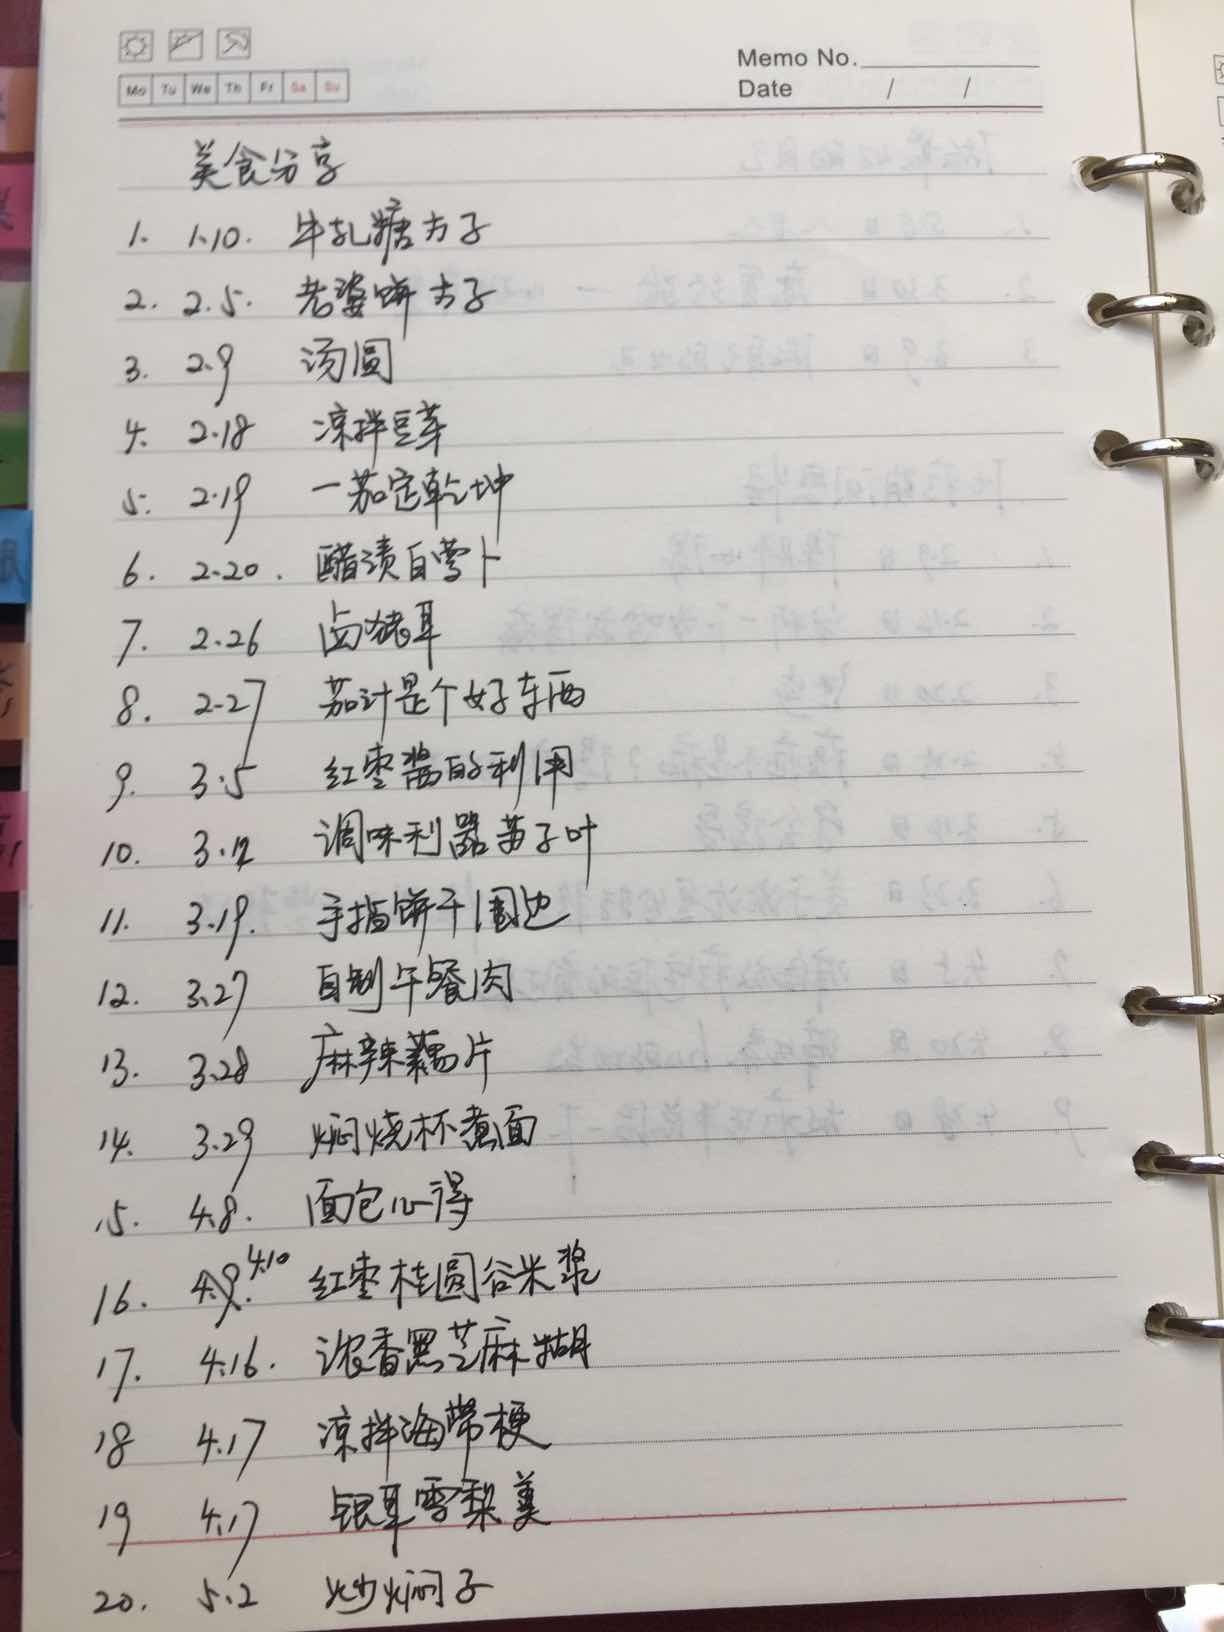 Memo No.
Mo Tu We Th Fr Sa Su
Date / /
美食分享
1. 1.10. 牛轧糖方子
2. 2.5. 老婆饼方子
3. 2.9 汤圆
4. 2.18 凉拌豆芽
5. 2.19 一茄定乾坤
6. 2.20. 醋渍白萝卜
7. 2.26 卤猪耳
8. 2.27 茄汁是个好东西
9. 3.5 红枣酱的利用
10. 3.12 调味利器苏子叶
11. 3.19. 手指饼干围边
12. 3.27 自制午餐肉
13. 3.28 麻辣藕片
14. 3.29 焖烧杯煮面
15. 4.8. 面包心得
16. 4.9. 4.10 红枣桂圆谷米浆
17. 4.16. 浓香黑芝麻糊
18 4.17 凉拌海带梗
19 4.17 银耳雪梨羹
20. 5.2 炒焖子